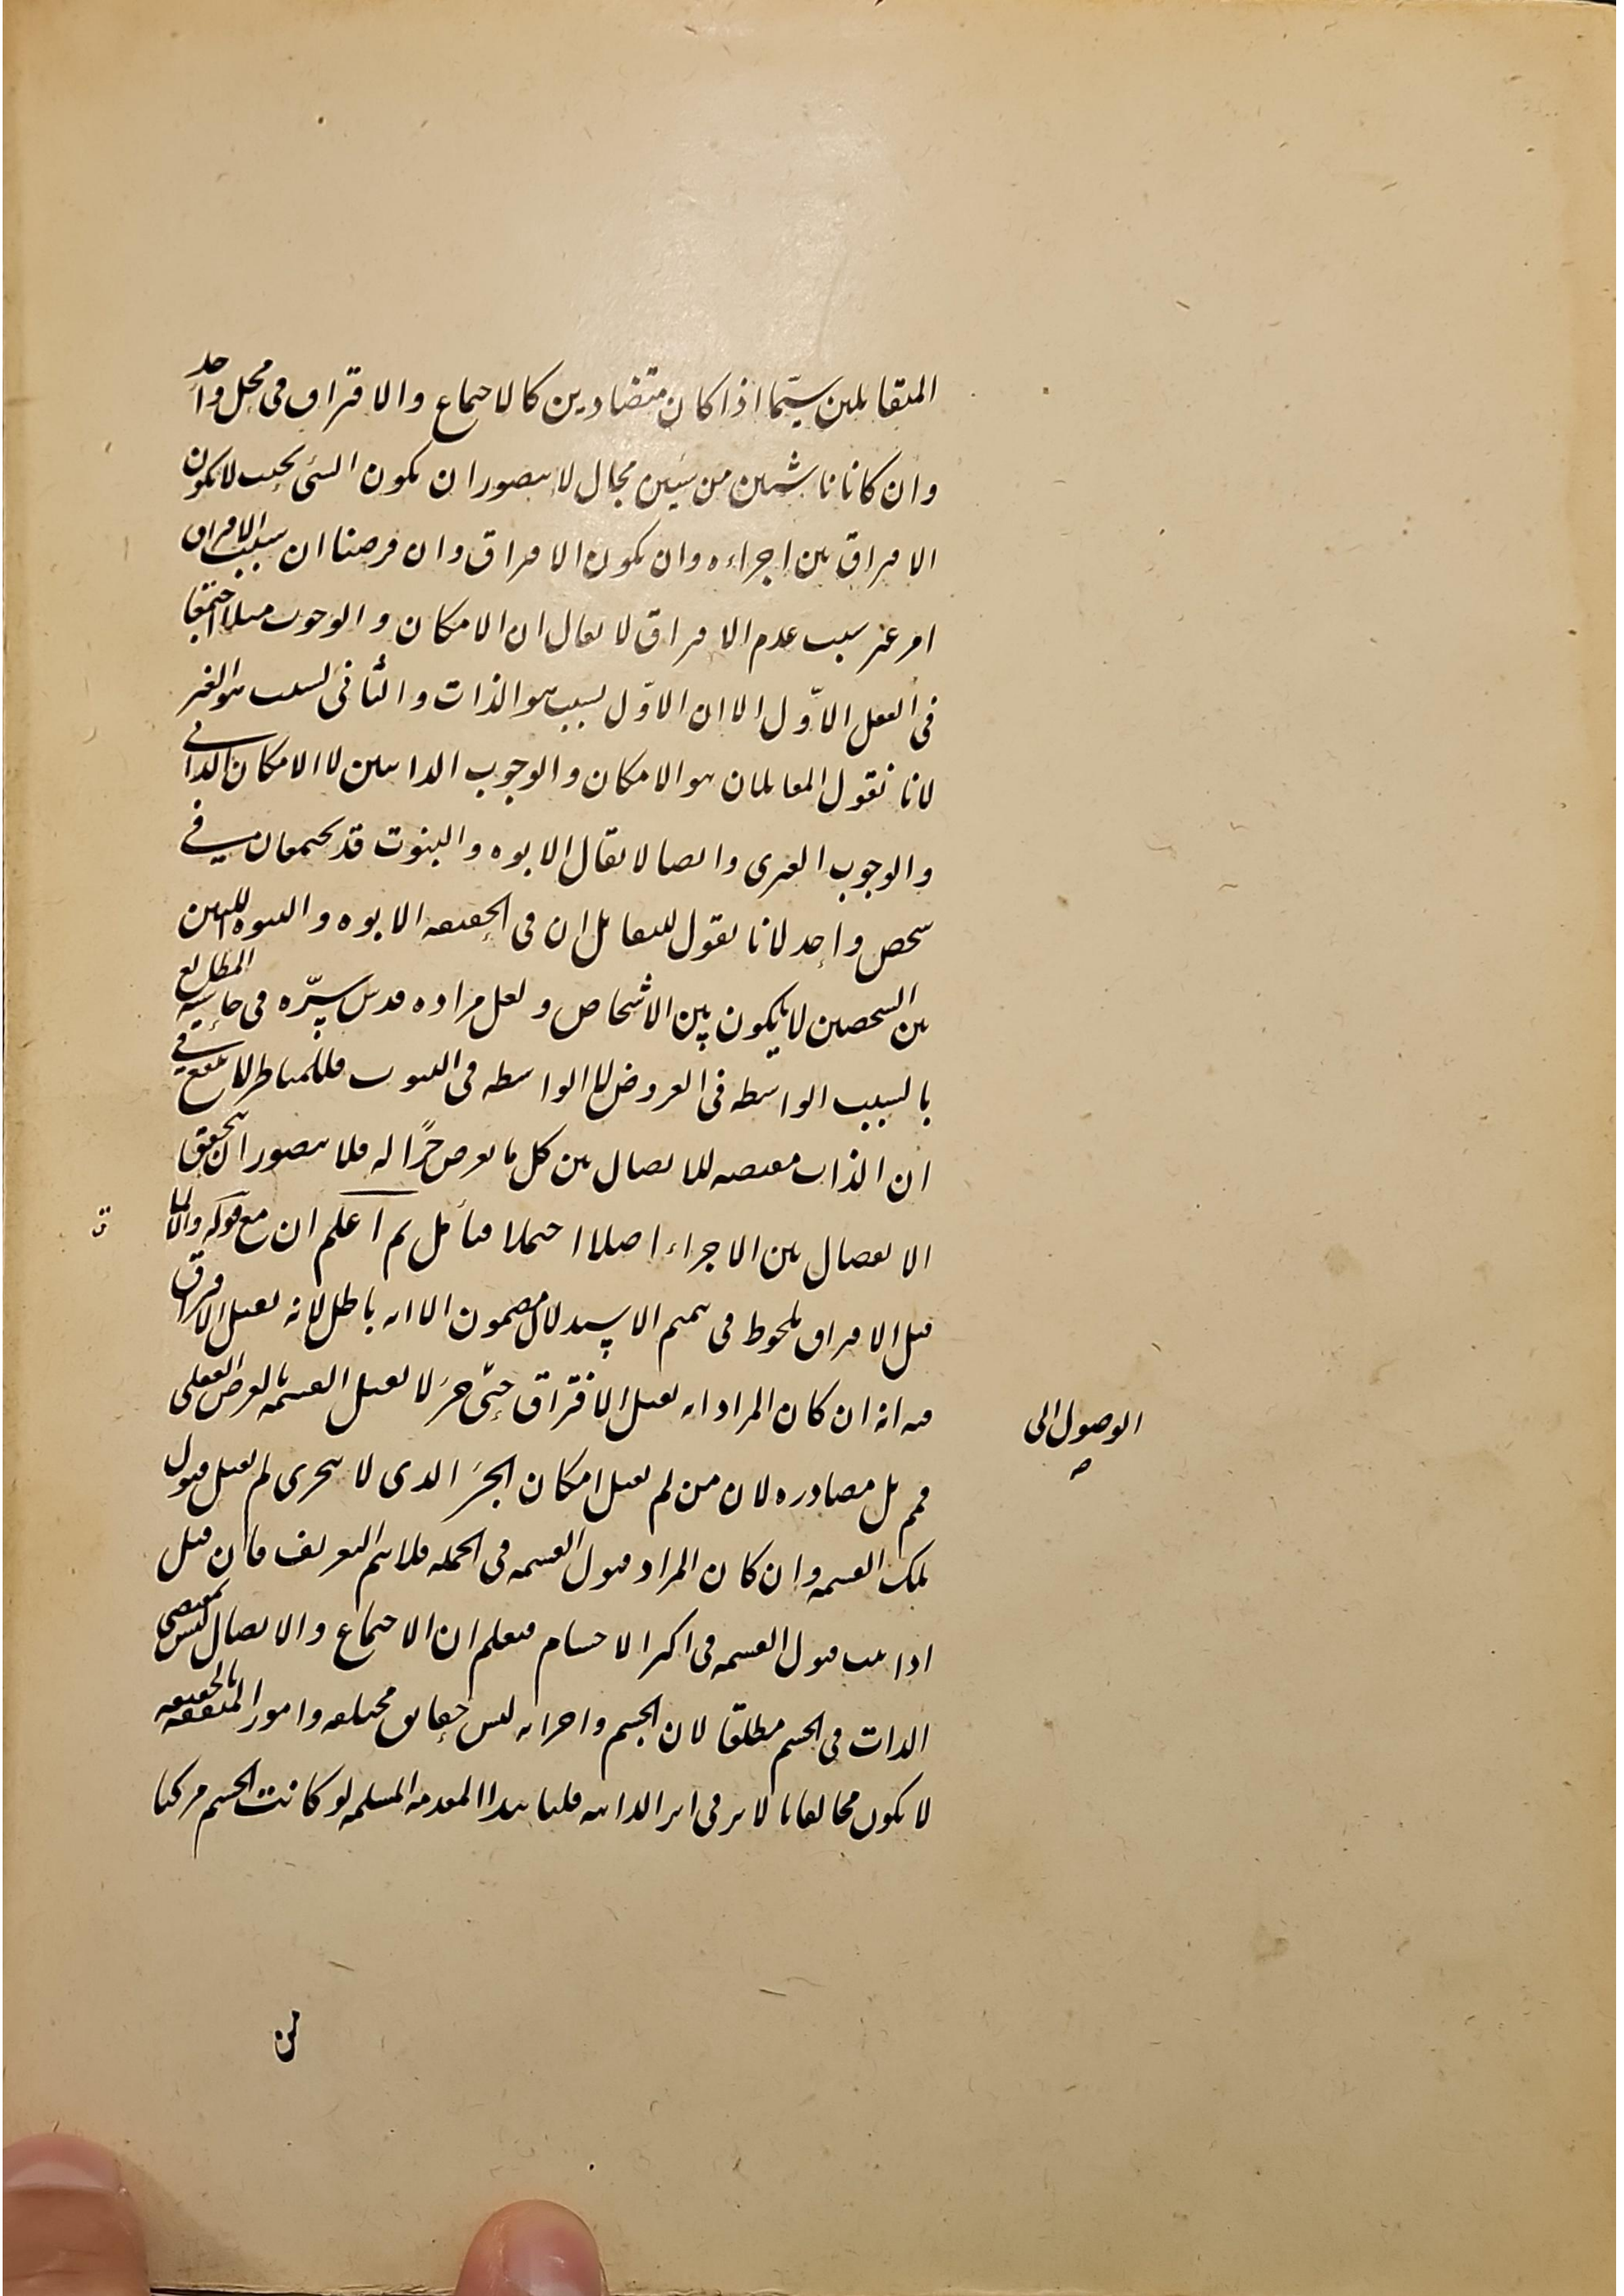 المتقابلين سيّما اذا كان متضادين كالاجتماع والافتراق في محل واحد
وان كانا ناشيين من شيئين محال لا يتصور ان يكون الشي بحيث لا يكون
الافتراق بين اجزاءه وان يكون الافتراق وان فرضنا ان سبب الافتراق
امر غير سبب عدم الافتراق لا يقال ان الامكان والوجوب مثلا اجتمعا
في العقل الاوّل الا ان الاوّل بسبب هو الذات والثاني بسبب هو الغير
لانا نقول المقابلان هو الامكان والوجوب الذاتيين لا الامكان الذاتي
والوجوب الغيري وايضا لا يقال الابوه والبنوت قد يجتمعان في
شخص واحد لانا نقول التقابل ان في الحقيقه الابوه والبنوه اللتين
بين الشخصين لا يكون بين الاشخاص ولعل مراده قدس سرّه في حاشية المطالع
بالسبب الواسطه في العروض لا الواسطه في الثبوت فللمناظر لا ينفع في
ان الذات مقتضيه للاتصال بين كل ما يفرض جزًا له فلا يتصور ان يتحقق
الانفصال بين الاجزاء اصلا احتمالا فتأمل ثم اعلم ان مع قوله والا لما
قبل الافتراق ملحوظ في تتميم الاستدلال مضمون الا انه باطل لانه يقبل الافتراق
فيه انه ان كان المراد انه يقبل الافتراق حتى جزء لا يقبل القسمة بالفرض العقلي
فمم بل مصادره لان من لم يقبل امكان الجزء الذي لا يتجزى لم يقبل قبول
تلك القسمه وان كان المراد قبول القسمه في الجمله فلا يتم التعريف فان قيل
اذا ثبت قبول القسمه في اكثر الاجسام فيعلم ان الاجتماع والاتصال ليس بمقتضى
الذات في الجسم مطلقا لان الجسم واجزائه ليس حقايق مختلفه وامور المتفقه بالحقيقه
لا يكون مخالفا بالاثر في اثر الذاتيه قلنا هذا المقدمه المسلمه لو كانت الجسم مركبا
الوصول الى
صه
ق
من